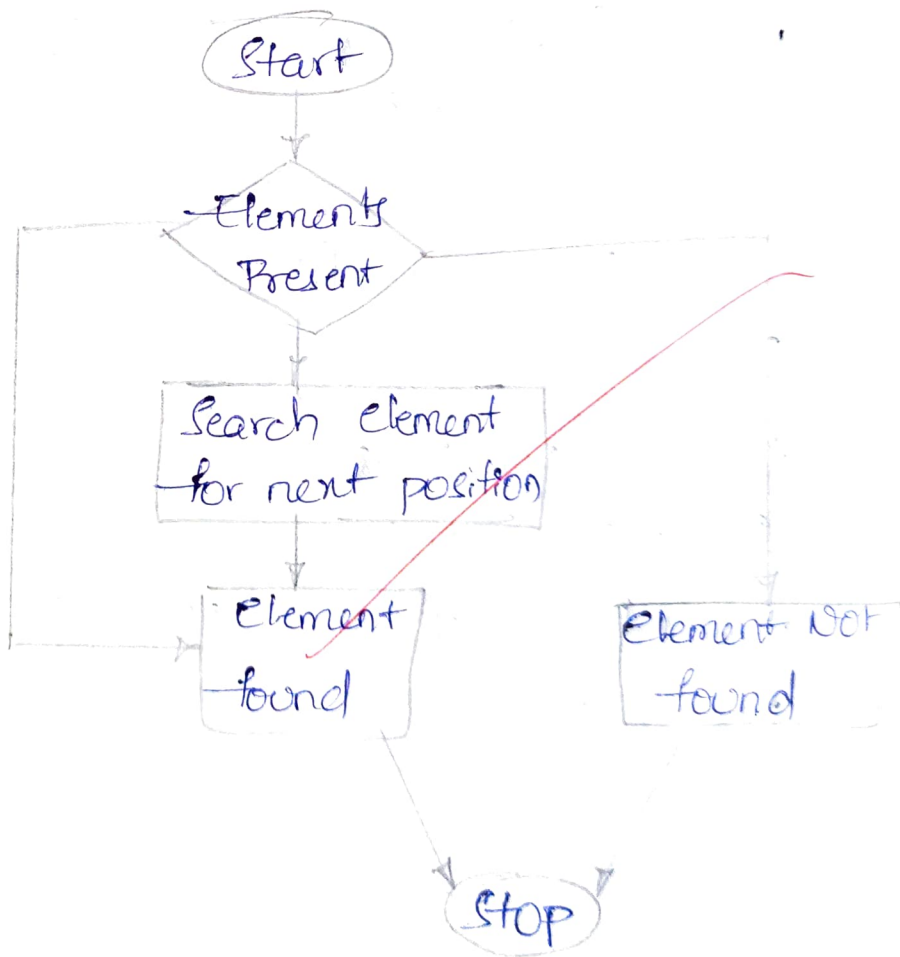 Start
Elements
Present
Search element
for next position
Element
found
Element Not
found
Stop